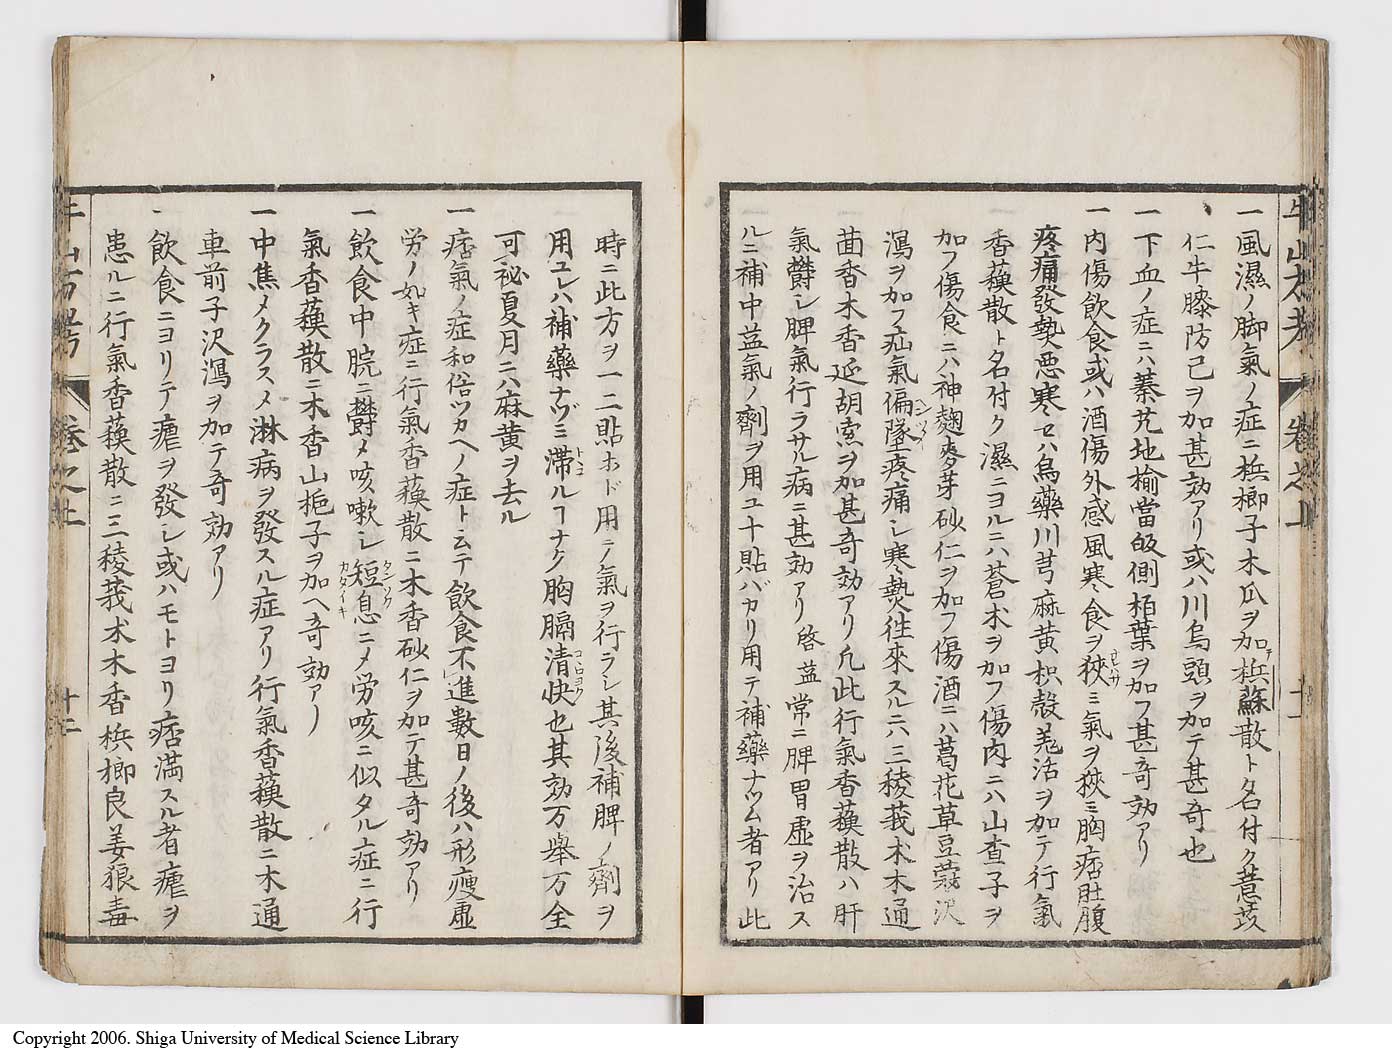 一風濕ノ脚氣ノ症ニ梹榔子木瓜ヲ加梹蘇散ト名付ク薏苡
仁牛膝防已ヲ加甚効アリ或ハ川烏頭ヲ加テ甚奇也
一下血ノ症ニハ蓁艽地榆當皈側栢葉ヲ加フ甚奇効アリ
一内傷飲食或ハ酒傷外感風寒食ヲ狹ミ氣ヲ狹ミ胸痞肚腹
疼痛發熱惡寒セハ烏藥川芎麻黄枳殻羗活ヲ加テ行氣
一香蘓散ト名付ク濕ニヨルニハ蒼朮ヲ加フ傷肉ニハ山査子ヲ
加フ傷食ニハ神麹麥芽砂仁ヲ加フ傷酒ニハ葛花草豆蔲沢
瀉ヲ加フ疝氣偏墜疼痛シ寒熱徃來スルニハ三稜莪朮木通
茴香木香延胡索ヲ加甚奇効アリ凡此行氣香蘓散ハ肝
氣欝シ脾氣行ラサル病ニ甚効アリ啓益常ニ脾胃虚ヲ治ス
ルニ補中益氣ノ劑ヲ用ユ十貼バカリ用テ補藥ナヅム者アリ此
牛山方考 卷之上 十二
時ニ此方ヲ一二貼ホド用テ氣ヲ行ラシ其後補脾ノ劑ヲ
用ユレハ補藥ナヅミ滯ルヿナク胸膈清快也其効万舉万全
可祕夏月ニハ麻黄ヲ去ル
一痞氣ノ症和俗ツカヘノ症ト云テ飲食不進數日ノ後ハ形瘦虚
労ノ如キ症ニ行氣香蘓散ニ木香砂仁ヲ加テ甚奇効アリ
一飲食中脘ニ欝メ咳嗽シ短息ニメ労咳ニ似タル症ニ行
氣香蘓散ニ木香山梔子ヲ加ヘ奇効アリ
一中焦メクラスメ淋病ヲ發スル症アリ行氣香蘓散ニ木通
車前子沢瀉ヲ加テ奇効アリ
一飲食ニヨリテ瘧ヲ發シ或ハモトヨリ痞満スル者瘧ヲ
患ルニ行氣香蘓散ニ三稜莪朮木香梹榔良姜狼毒
Copyright 2006. Shiga University of Medical Science Library